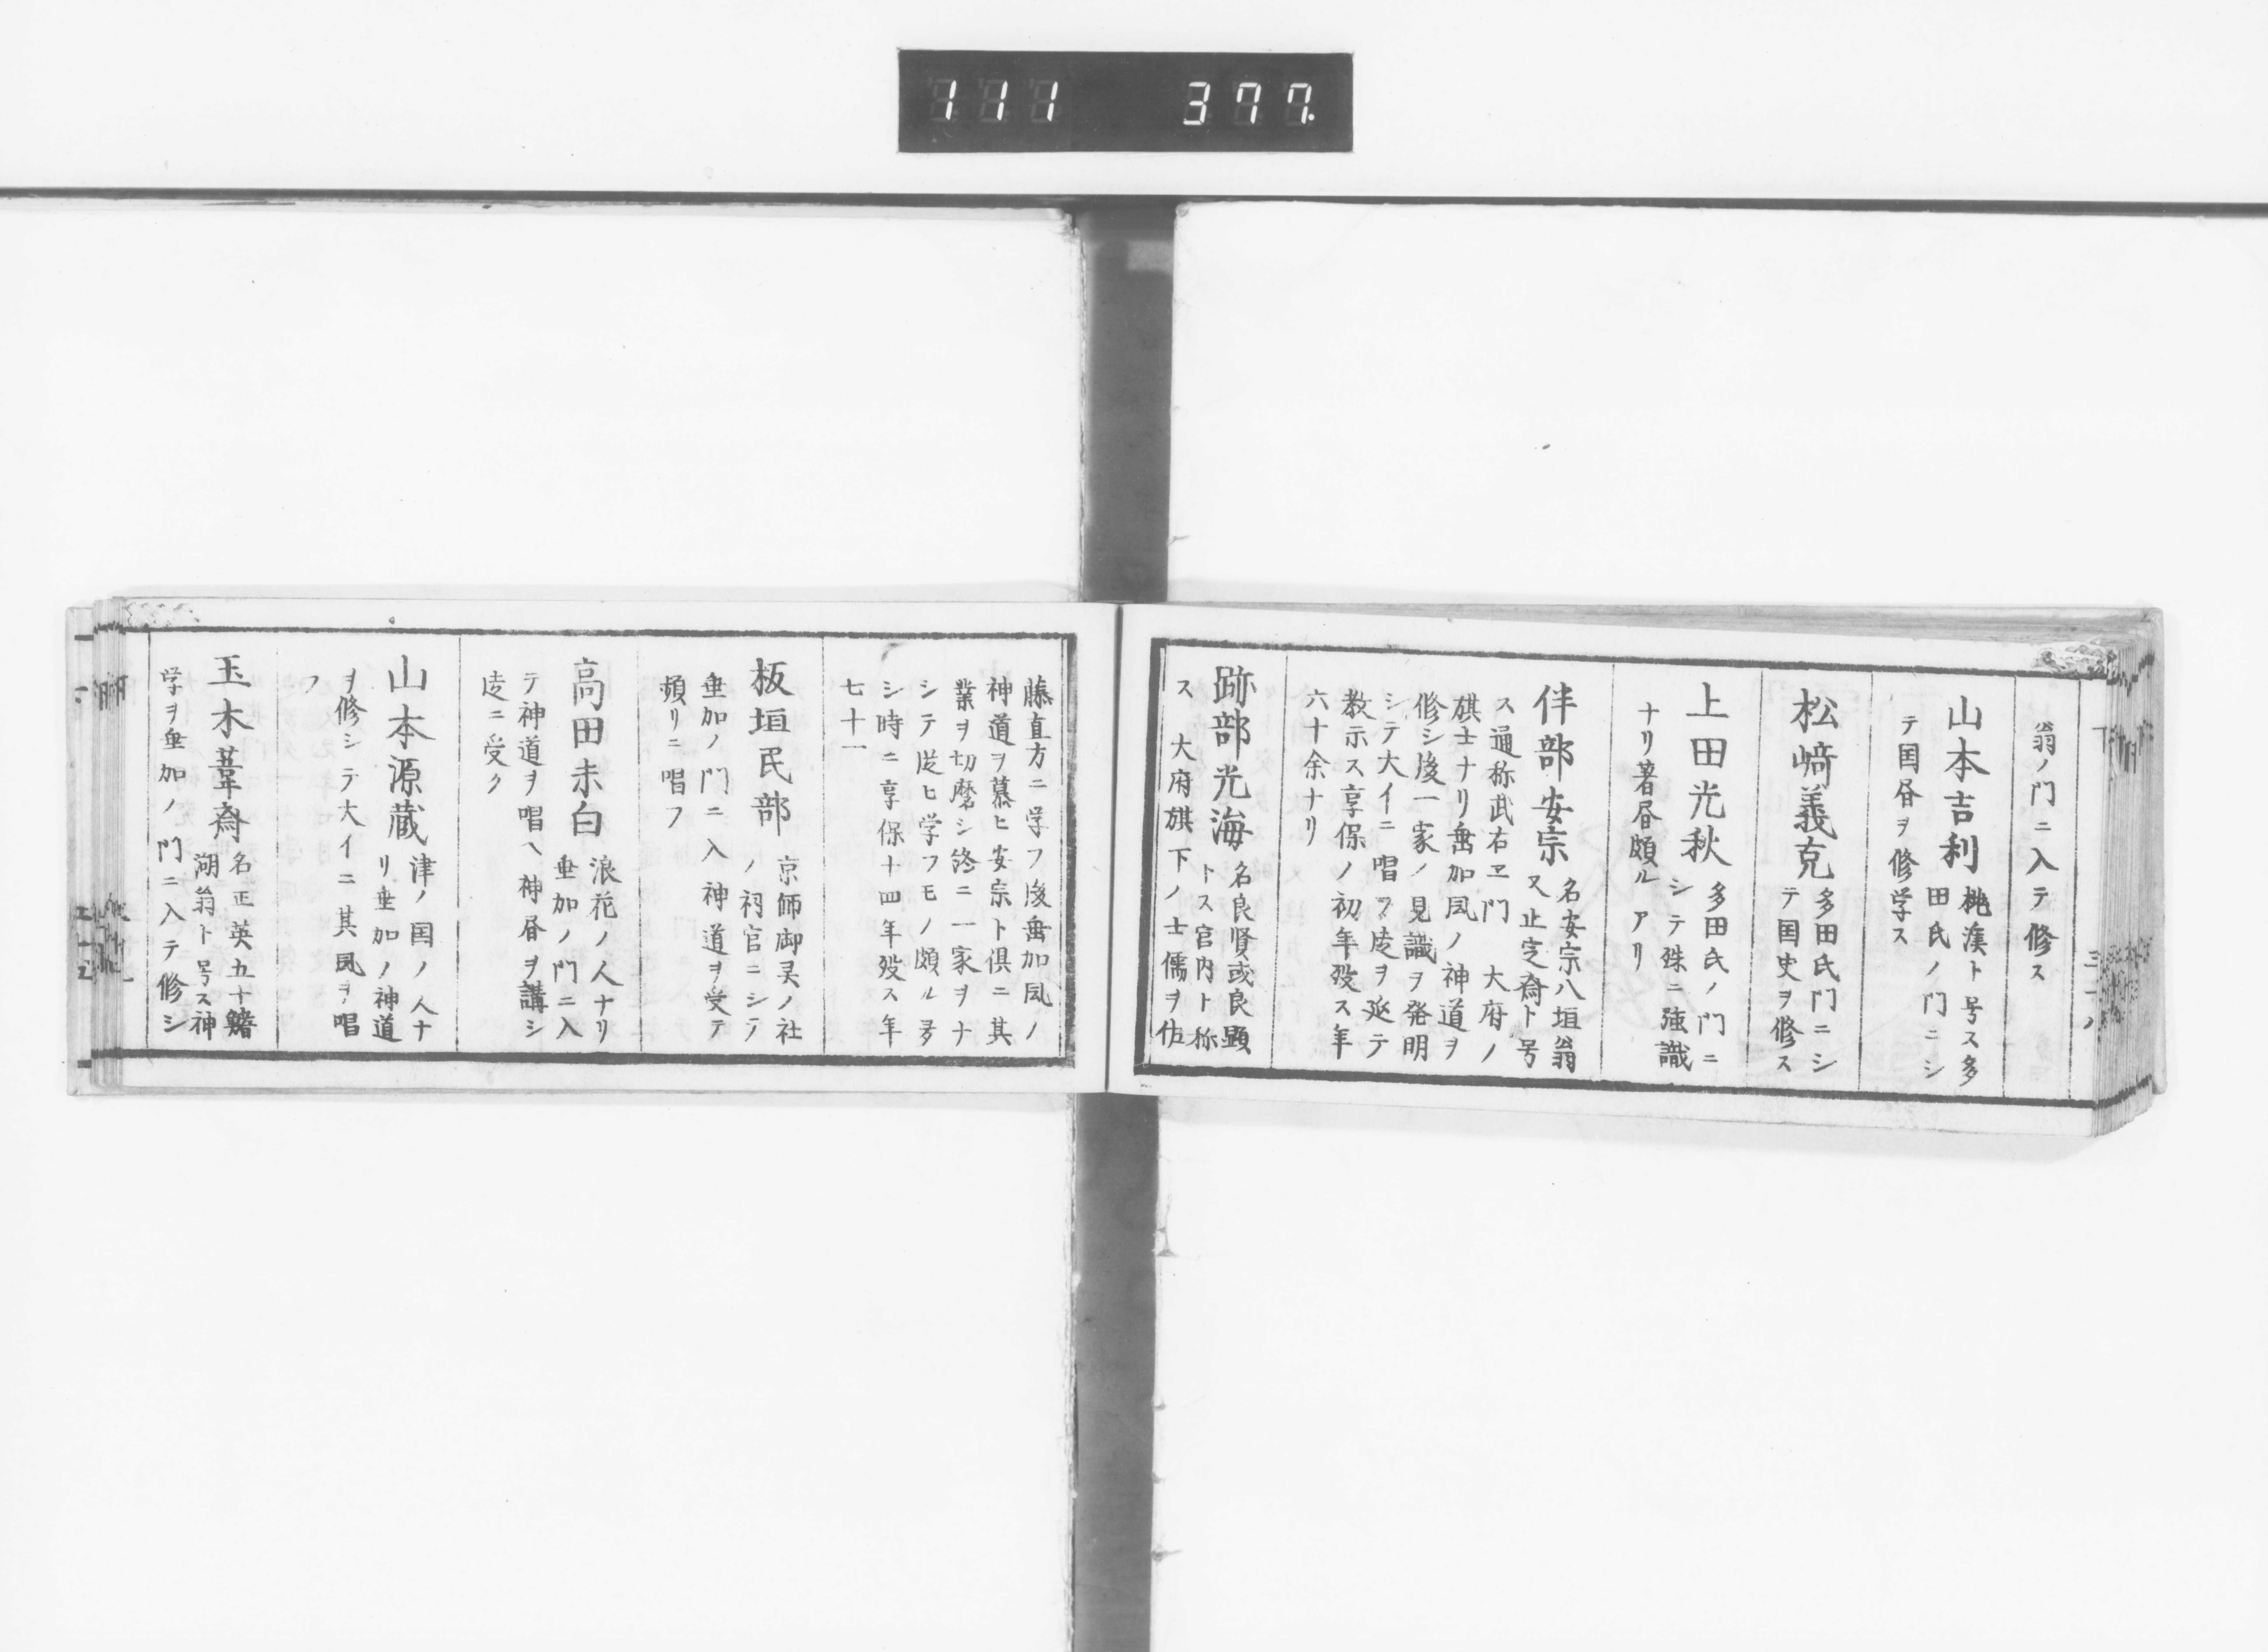 111 377.
翁ノ門ニ入テ修ス
山本吉利
桃漢ト号ス多
田氏ノ門ニシ
テ国昼ヲ修学ス
松﨑義克
多田氏門ニシ
テ国史ヲ修ス
上田光秋
多田氏ノ門ニ
シテ殊ニ強識
ナリ著昼頗ルアリ
伴部安宗
名安宗八垣翁
又止定斎ト号
ス通称武右ヱ門 大府ノ
旗士ナリ垂加風ノ神道ヲ
修シ後一家ノ見識ヲ発明
シテ大イニ唱フ徒ヲ延テ
教示ス享保ノ初年歿ス年
六十余ナリ
跡部光海
名良賢或良顕
トス宮内ト称
ス 大府旗下ノ士儒ヲ佐
藤直方ニ学フ後垂加風ノ
神道ヲ慕ヒ安宗ト倶ニ其
業ヲ切磨シ終ニ一家ヲナ
シテ従ヒ学フモノ頗ル多
シ時ニ享保十四年歿ス年
七十一
板垣民部
京師御霊ノ社
ノ祠官ニシテ
垂加ノ門ニ入神道ヲ受テ
頻リニ唱フ
高田未白
浪花ノ人ナリ
垂加ノ門ニ入
テ神道ヲ唱ヘ神昼ヲ講シ
徒ニ受ク
山本源蔵
津ノ国ノ人ナ
リ垂加ノ神道
ヲ修シテ大イニ其風ヲ唱
フ
玉木葦斎
名正英五十鰭
湖翁ト号ス神
学ヲ垂加ノ門ニ入テ修シ